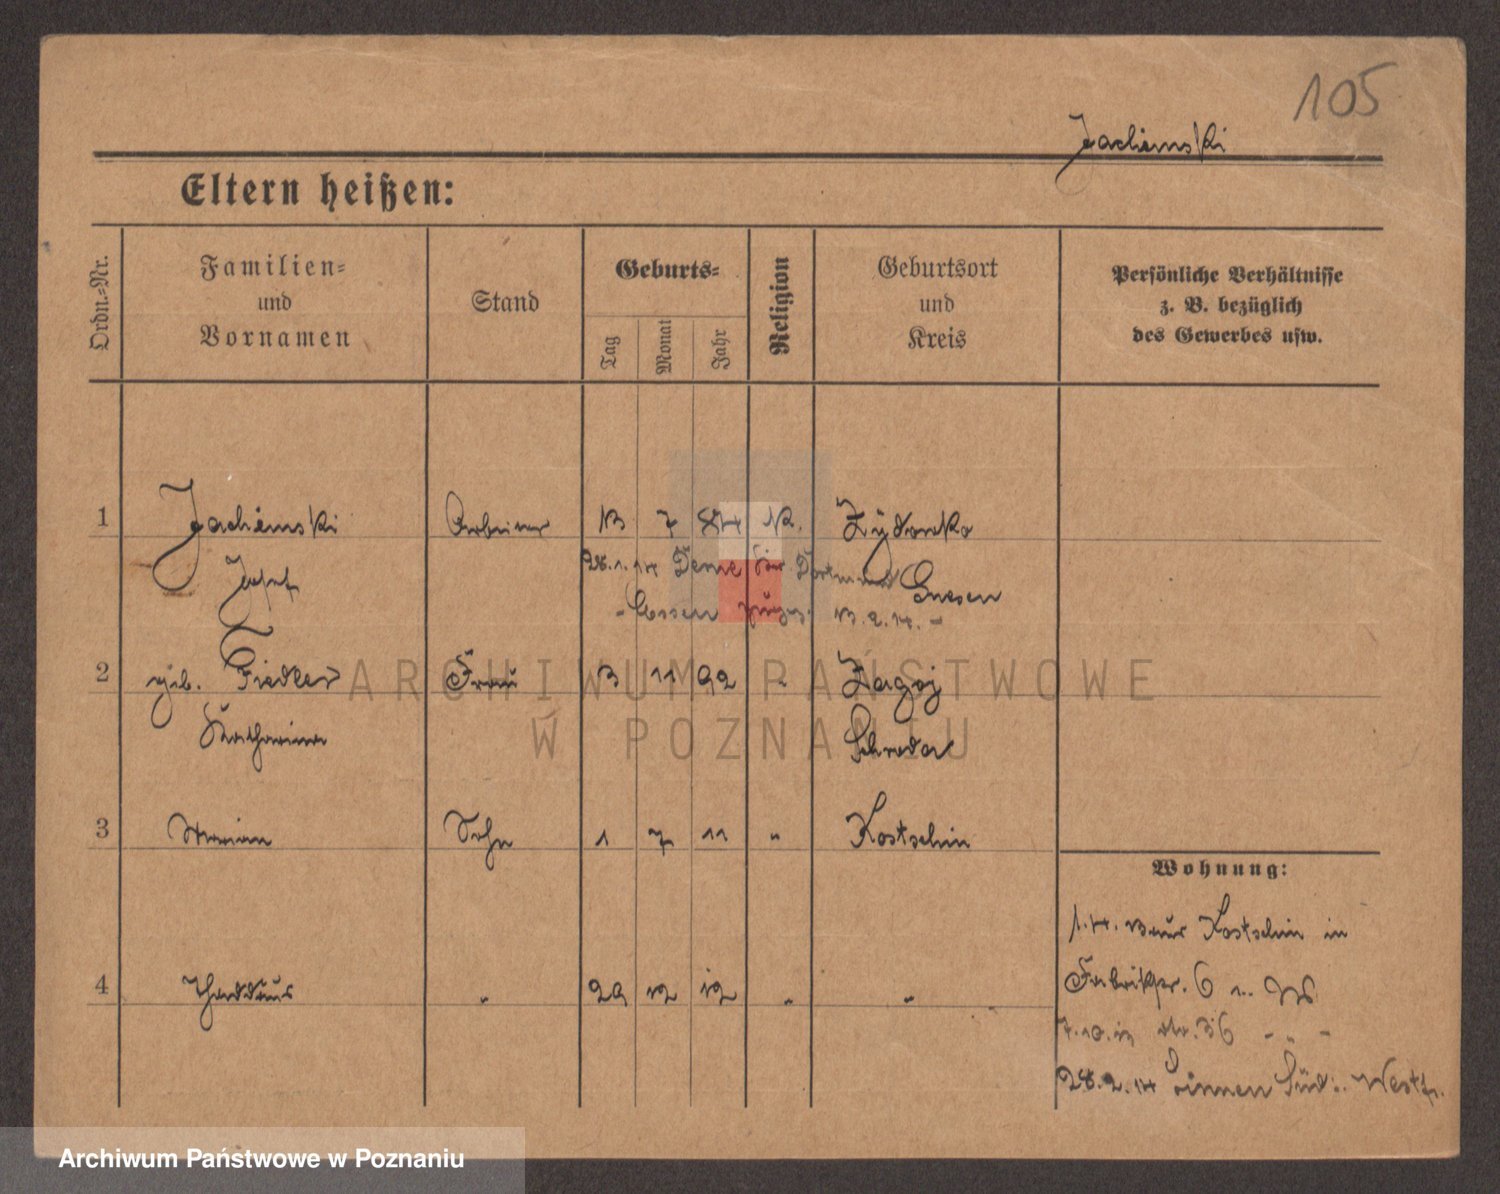 105
Jachimski
Eltern heißen:
Ordn.-Nr.
Familien-
und
Vornamen
Stand
Geburts-
Tag
Monat
Jahr
Religion
Geburtsort
und
Kreis
Persönliche Verhältnisse
z. B. bezüglich
des Gewerbes usw.
1 Jachimski Arbeiter 13 7 84 K. Żydowko
28.1.14
Josef Gnesen
13.2.14. -
2 geb. Fiedler Frau 3 11 92 " Zagaj
Katharina Schroda
3 Marian Sohn 1 7 11 " Kostschin
Wohnung:
1.4.13 aus Kostschin in
Fabrikstr. 6
4 Thaddäus " 29 12 12 " "
7.10.13 Nr. 36 - " -
28.2.14 Süd: Westf.
ARCHIWUM PAŃSTWOWE
W POZNANIU
Archiwum Państwowe w Poznaniu